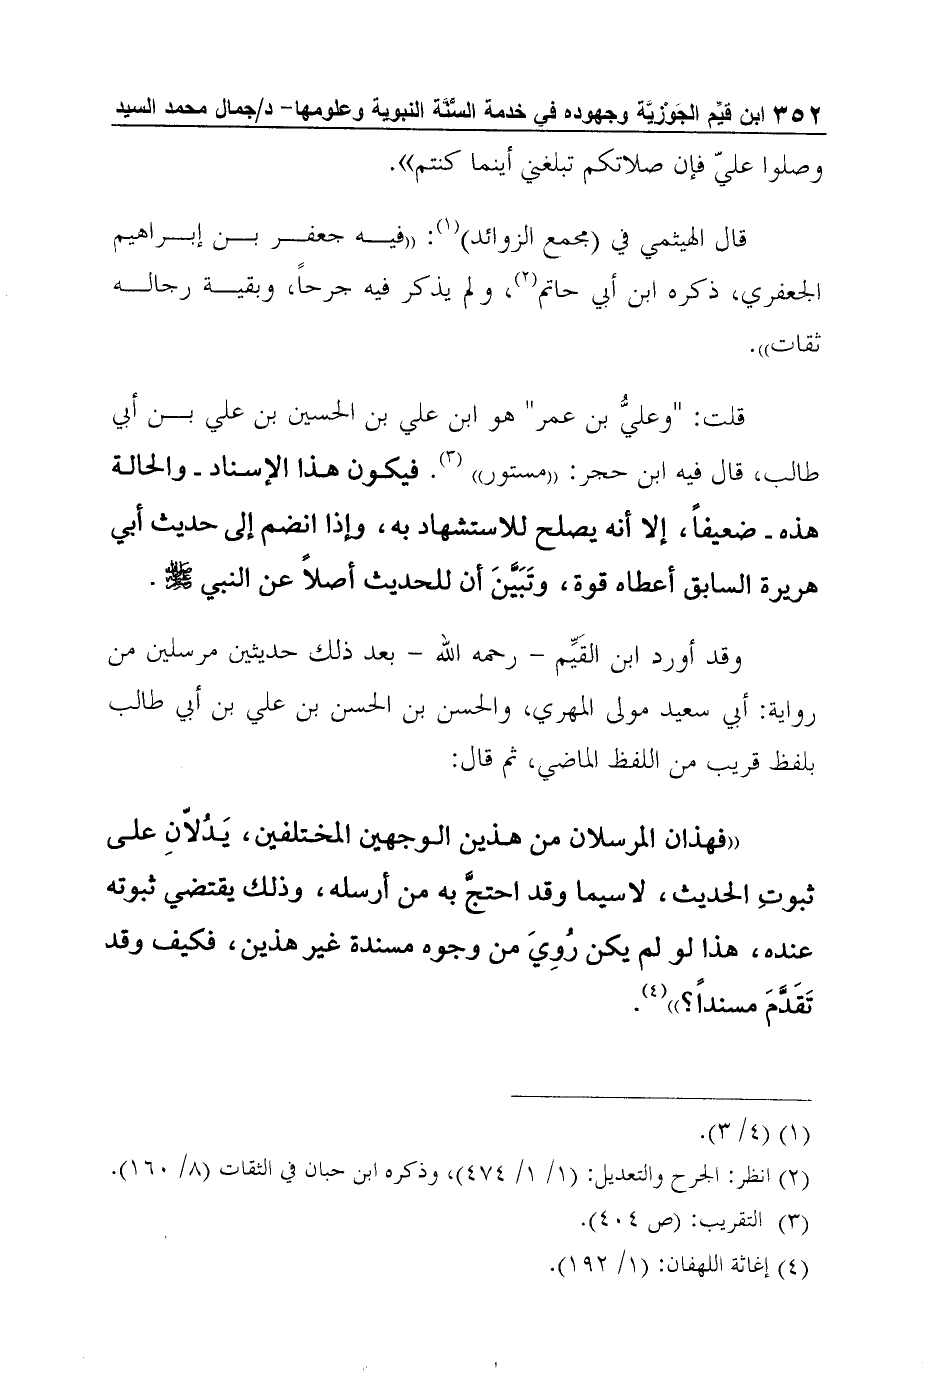 ٣٥٢ ابن قيِّم الجَوْزيَّة وجهوده في خدمة السنَّة النبوية وعلومها- د/جمال محمد السيد
وصلوا عليّ فإن صلاتكم تبلغني أينما كنتم».
قال الهيثمي في (مجمع الزوائد)(١): «فيه جعفر بن إبراهيم
الجعفري، ذكره ابن أبي حاتم(٢)، ولم يذكر فيه جرحاً، وبقية رجاله
ثقات».
قلت: "وعليُّ بن عمر" هو ابن علي بن الحسين بن علي بن أبي
طالب، قال فيه ابن حجر: «مستور» (٣). فيكون هذا الإسناد ـ والحالة
هذه ـ ضعيفاً، إلا أنه يصلح للاستشهاد به، وإذا انضم إلى حديث أبي
هريرة السابق أعطاه قوة، وتَبَيَّنَ أن للحديث أصلاً عن النبي ﷺ.
وقد أورد ابن القَيِّم – رحمه الله – بعد ذلك حديثين مرسلين من
رواية: أبي سعيد مولى المهري، والحسن بن الحسن بن علي بن أبي طالب
بلفظ قريب من اللفظ الماضي، ثم قال:
«فهذان المرسلان من هذين الوجهين المختلفين، يَدُلاَّنِ على
ثبوتِ الحديث، لاسيما وقد احتجَّ به من أرسله، وذلك يقتضي ثبوته
عنده، هذا لو لم يكن رُوِيَ من وجوه مسندة غير هذين، فكيف وقد
تَقَدَّمَ مسنداً؟»(٤).
(١) (٤/ ٣).
(٢) انظر: الجرح والتعديل: (١/ ١/ ٤٧٤)، وذكره ابن حبان في الثقات (٨/ ١٦٠).
(٣) التقريب: (ص ٤٠٤).
(٤) إغاثة اللهفان: (١/ ١٩٢).